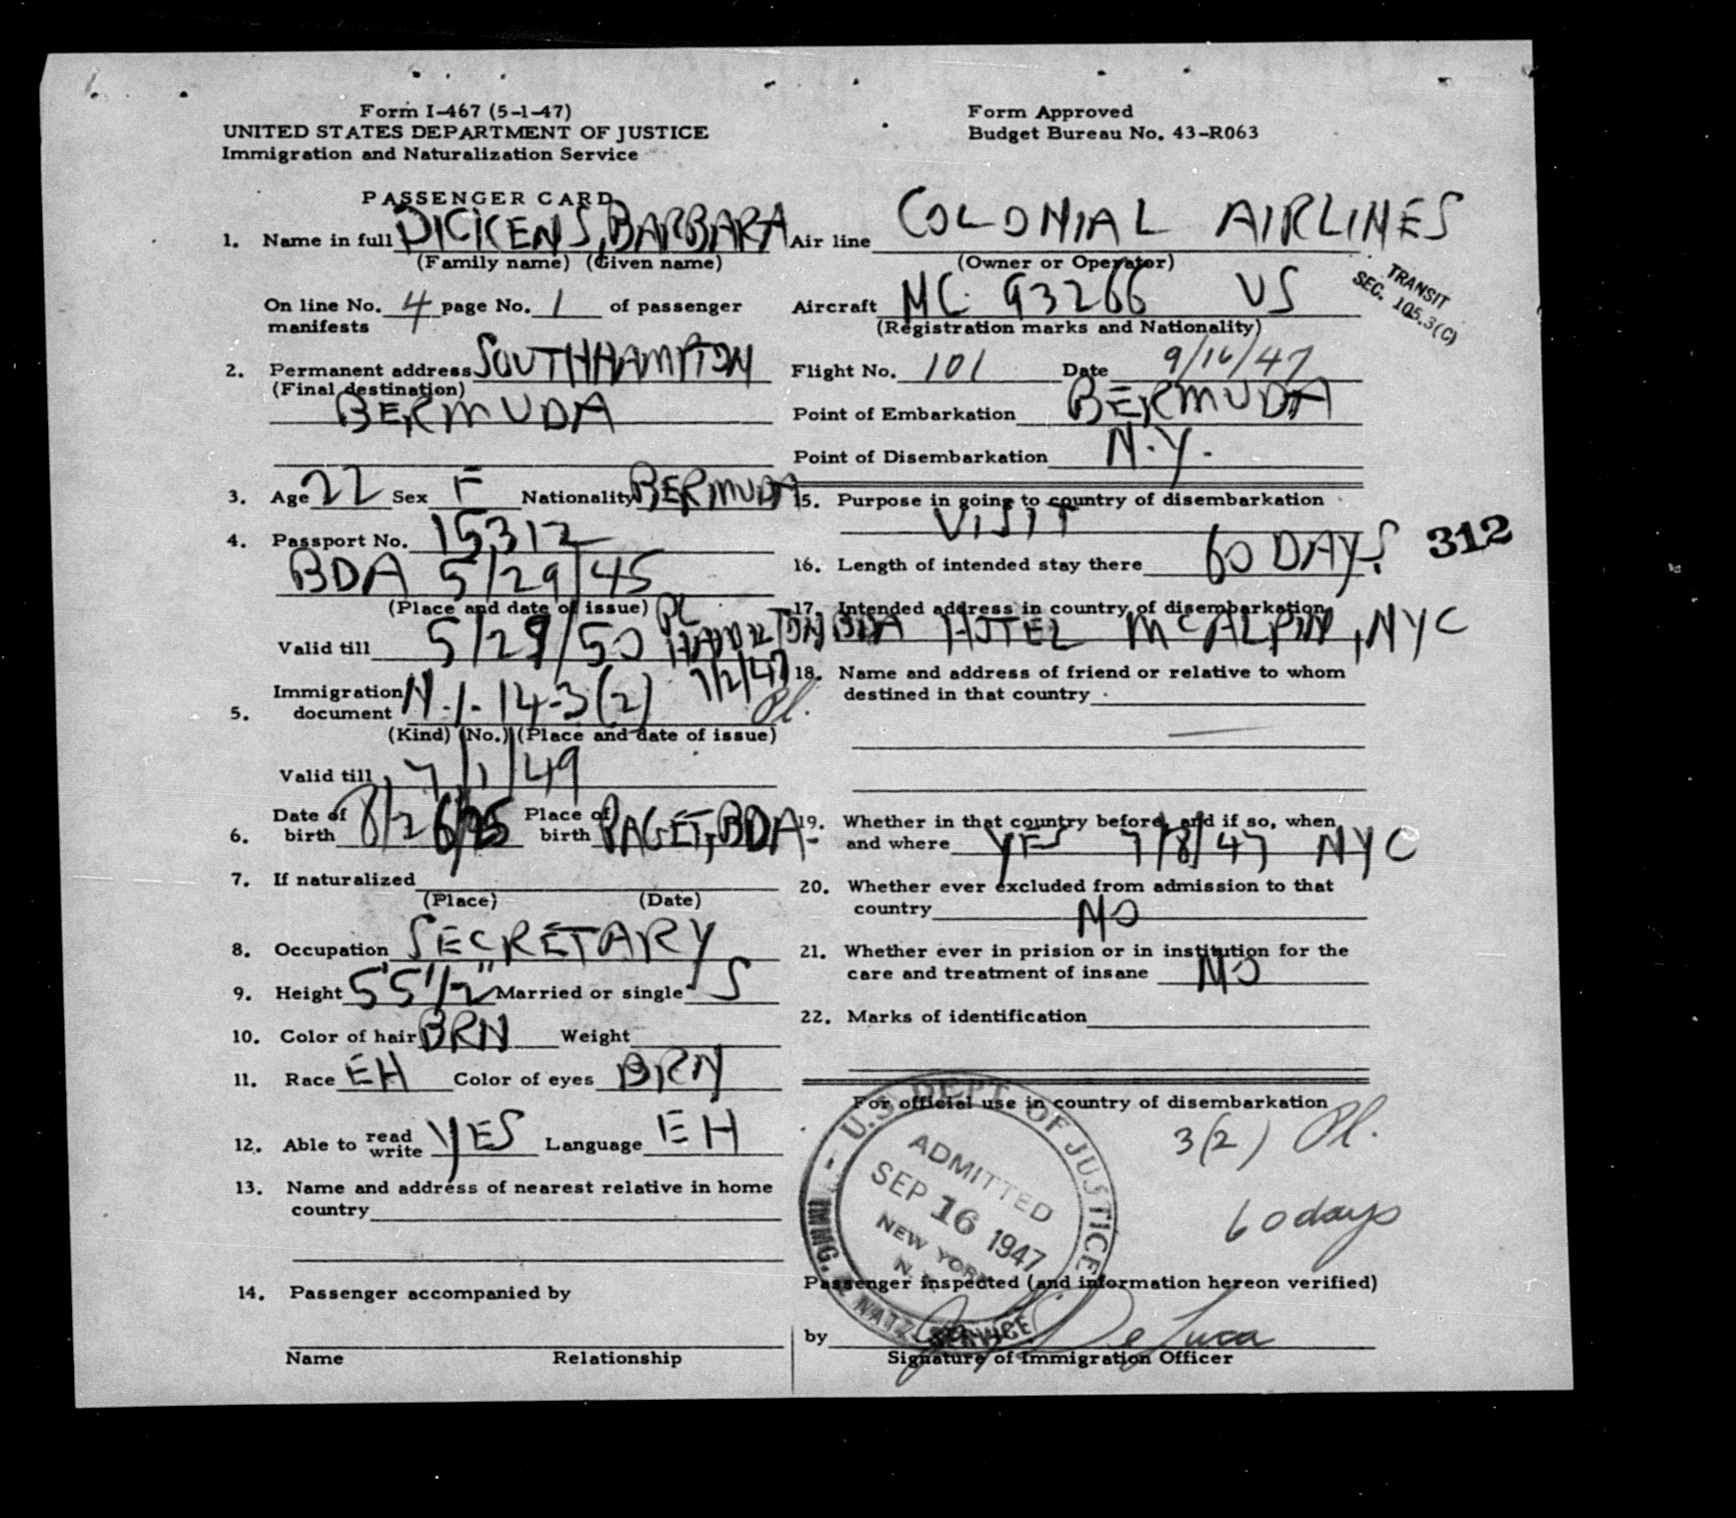 Form I-467 (5-1-47)
UNITED STATES DEPARTMENT OF JUSTICE
Immigration and Naturalization Service
Form Approved
Budget Bureau No. 43-R063
PASSENGER CARD
1. Name in full DICKENS, BARBARA
(Family name) (Given name)
On line No. 4 page No. 1 of passenger
manifests
2. Permanent address SOUTHHAMPTON
(Final destination)
BERMUDA
3. Age 22 Sex F Nationality BERMUDA
4. Passport No. 15312
BDA 5/29/45
(Place and date of issue)
Valid till 5/29/50 HAMILTON BDA
7/2/47
Immigration
5. document N.I. 14-3(2)
(Kind) (No.) (Place and date of issue)
Valid till 7/1/49
Date of Place of
6. birth 8/26/25 birth PAGET, BDA-
7. If naturalized
(Place) (Date)
8. Occupation SECRETARY
9. Height 5'5 1/2" Married or single S
10. Color of hair BRN Weight
11. Race EH Color of eyes BRN
12. Able to read write YES Language EH
13. Name and address of nearest relative in home
country
14. Passenger accompanied by
Name Relationship
Air line COLONIAL AIRLINES
(Owner or Operator)
Aircraft NC 93266 US
(Registration marks and Nationality)
TRANSIT
SEC. 105.3(C)
Flight No. 101 Date 9/16/47
Point of Embarkation BERMUDA
Point of Disembarkation N.Y.
15. Purpose in going to country of disembarkation
VISIT
312
16. Length of intended stay there 60 DAYS.
17. Intended address in country of disembarkation
HOTEL McALPIN, NYC
18. Name and address of friend or relative to whom
destined in that country
19. Whether in that country before, and if so, when
and where YES 7/8/47 NYC
20. Whether ever excluded from admission to that
country NO
21. Whether ever in prision or in institution for the
care and treatment of insane NO
22. Marks of identification
For official use in country of disembarkation
3(2) Pl.
60 days
U.S. DEPT. OF JUSTICE
ADMITTED
SEP 16 1947
NEW YORK
N.
IMMG. & NATZ. SERVICE
Passenger inspected (and information hereon verified)
by De Luca
Signature of Immigration Officer